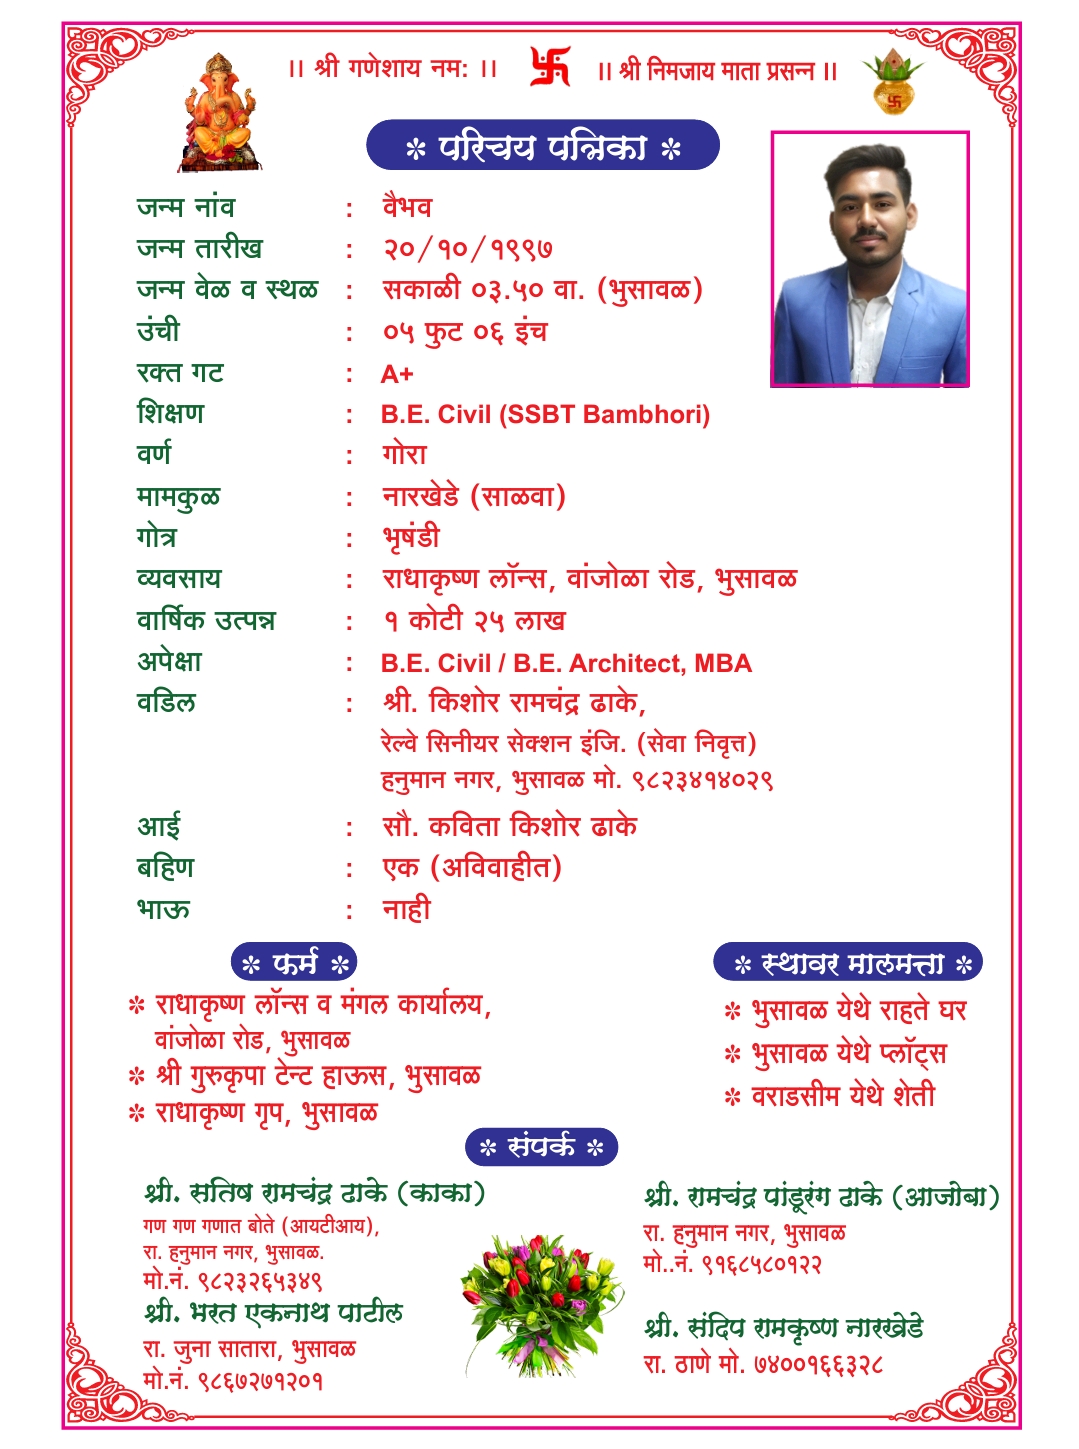 ।। श्री गणेशाय नम: ।।
।। श्री निमजाय माता प्रसन्न ।।
❇ परिचय पत्रिका ❇
जन्म नांव : वैभव
जन्म तारीख : २०/१०/१९९७
जन्म वेळ व स्थळ : सकाळी ०३.५० वा. (भुसावळ)
उंची : ०५ फुट ०६ इंच
रक्त गट : A+
शिक्षण : B.E. Civil (SSBT Bambhori)
वर्ण : गोरा
मामकुळ : नारखेडे (साळवा)
गोत्र : भृषंडी
व्यवसाय : राधाकृष्ण लॉन्स, वांजोळा रोड, भुसावळ
वार्षिक उत्पन्न : १ कोटी २५ लाख
अपेक्षा : B.E. Civil / B.E. Architect, MBA
वडिल : श्री. किशोर रामचंद्र ढाके,
रेल्वे सिनीयर सेक्शन इंजि. (सेवा निवृत्त)
हनुमान नगर, भुसावळ मो. ९८२३४१४०२९
आई : सौ. कविता किशोर ढाके
बहिण : एक (अविवाहीत)
भाऊ : नाही
❇ फर्म ❇
❇ राधाकृष्ण लॉन्स व मंगल कार्यालय,
वांजोळा रोड, भुसावळ
❇ श्री गुरुकृपा टेन्ट हाऊस, भुसावळ
❇ राधाकृष्ण गृप, भुसावळ
❇ स्थावर मालमत्ता ❇
❇ भुसावळ येथे राहते घर
❇ भुसावळ येथे प्लॉट्स
❇ वराडसीम येथे शेती
❇ संपर्क ❇
श्री. सतिष रामचंद्र ढाके (काका)
गण गण गणात बोते (आयटीआय),
रा. हनुमान नगर, भुसावळ.
मो.नं. ९८२३२६५३४९
श्री. भरत एकनाथ पाटील
रा. जुना सातारा, भुसावळ
मो.नं. ९८६७२७१२०१
श्री. रामचंद्र पांडूरंग ढाके (आजोबा)
रा. हनुमान नगर, भुसावळ
मो..नं. ९१६८५८०१२२
श्री. संदिप रामकृष्ण नारखेडे
रा. ठाणे मो. ७४००१६६३२८